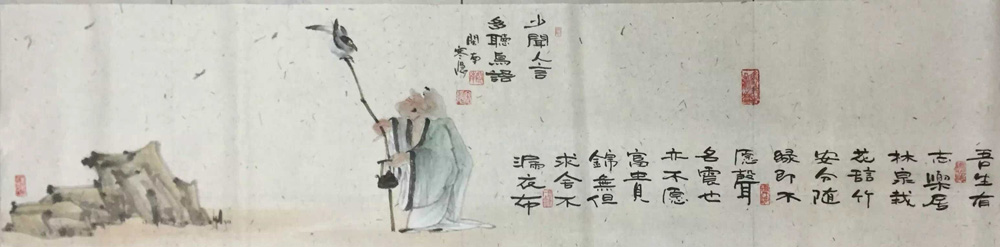 少聞人言
多聽鳥語
閩南
吾生有
志樂居
林泉栽
花竹
安分隨
緣即不
愿聲
名震也
亦不愿
富貴
錦無但
求舍不
漏衣布